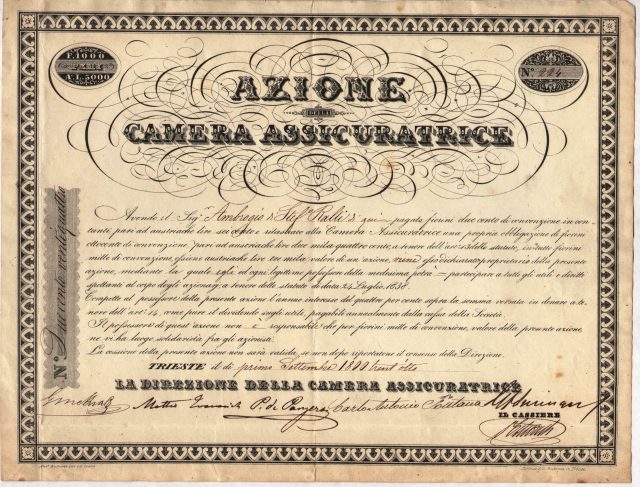 F. 1000
A.L. 3000
N° 224
AZIONE
DELLA
CAMERA ASSICURATRICE
N° Duecento ventiquattro
Avendo il Sigr Ambrogio di Stefo Ralli di quì pagata fiorini duecento di convenzione in con-
tanti, pari ad austriache lire seicento e rilasciato alla Camera Assicuratrice una propria obbligazione di fiorini
ottocento di convenzione, pari ad austriache lire due mila quattrocento, a tenore dell' dello statuto, in tutti fiorini
mille di convenzione ossieno austriache lire tre mila, valore di un' azione, viene esso dichiarato proprietario della presente
azione, mediante la quale egli ed ogni legittimo possessore della medesima potrà partecipare a tutti gli utili e diritti
spettanti al corpo degli azionarj a tenore dello statuto di data 24 Luglio 1838.
Competto al possessore della presente azione l'annuo interesse del quattro per cento sopra la somma versata in denaro a te-
nore dell' art° 14 come pure il dividendo sugli utili, pagabili annualmente dalla cassa della Società.
Il possessore di quest' azione non è responsabile che per fiorini mille di convenzione, valore della presente azione,
ne vi ha luogo solidarietà fra gli azionisti.
La cessione della presente azione non sarà valida, se non dopo riportatone il consenso della Direzione.
TRIESTE il dì primo Settembre 1800 trent'otto
LA DIREZIONE DELLA CAMERA ASSICURATRICE
P. di Carlo Antonio Fontana
IL CASSIERE